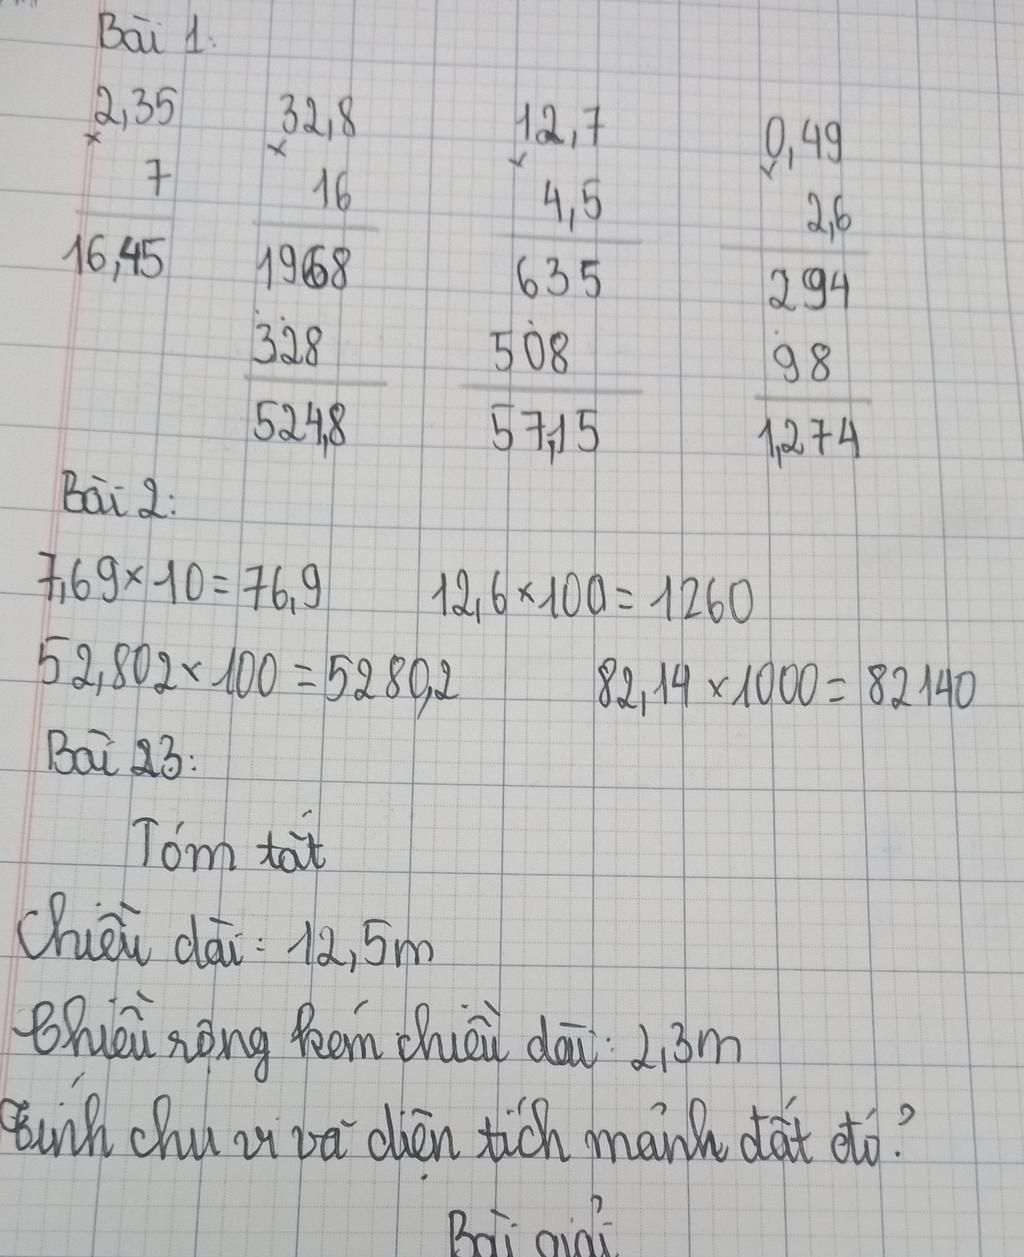 Bài 1:
2,35 32,8 12,7 0,49
× × × ×
7 16 4,5 2,6
16,45 1968 635 294
328 508 98
524,8 57,15 1,274
Bài 2:
7,69 × 10 = 76,9 12,6 × 100 = 1260
52,802 × 100 = 5280,2 82,14 × 1000 = 82140
Bài 23:
Tóm tắt
Chiều dài: 12,5m
Chiều rộng kém chiều dài: 2,3m
Tính chu vi và diện tích mảnh đất đó?
Bài giải